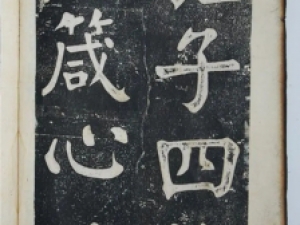 子四
箴心